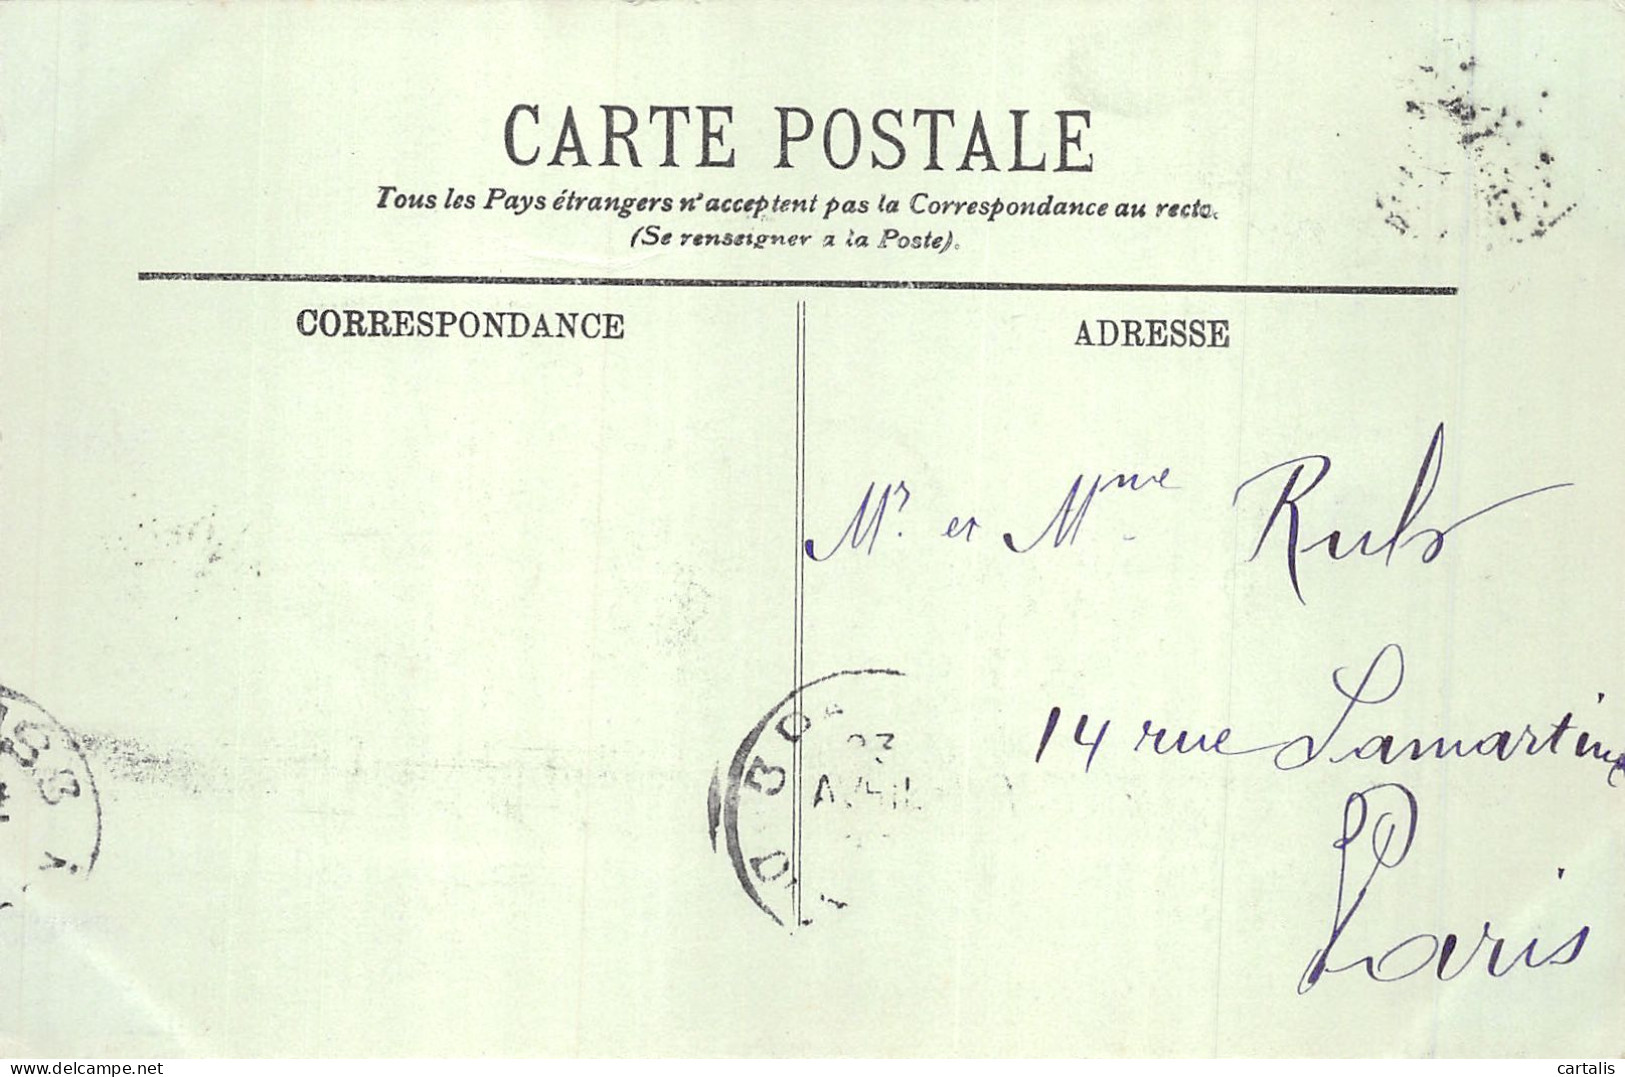 CARTE POSTALE
Tous les Pays étrangers n'acceptent pas la Correspondance au recto.
(Se renseigner a la Poste).
CORRESPONDANCE
ADRESSE
Mr. et Mme Rub
14 rue Lamartine
Paris
23
AVRIL
delcampe.net
cartalis